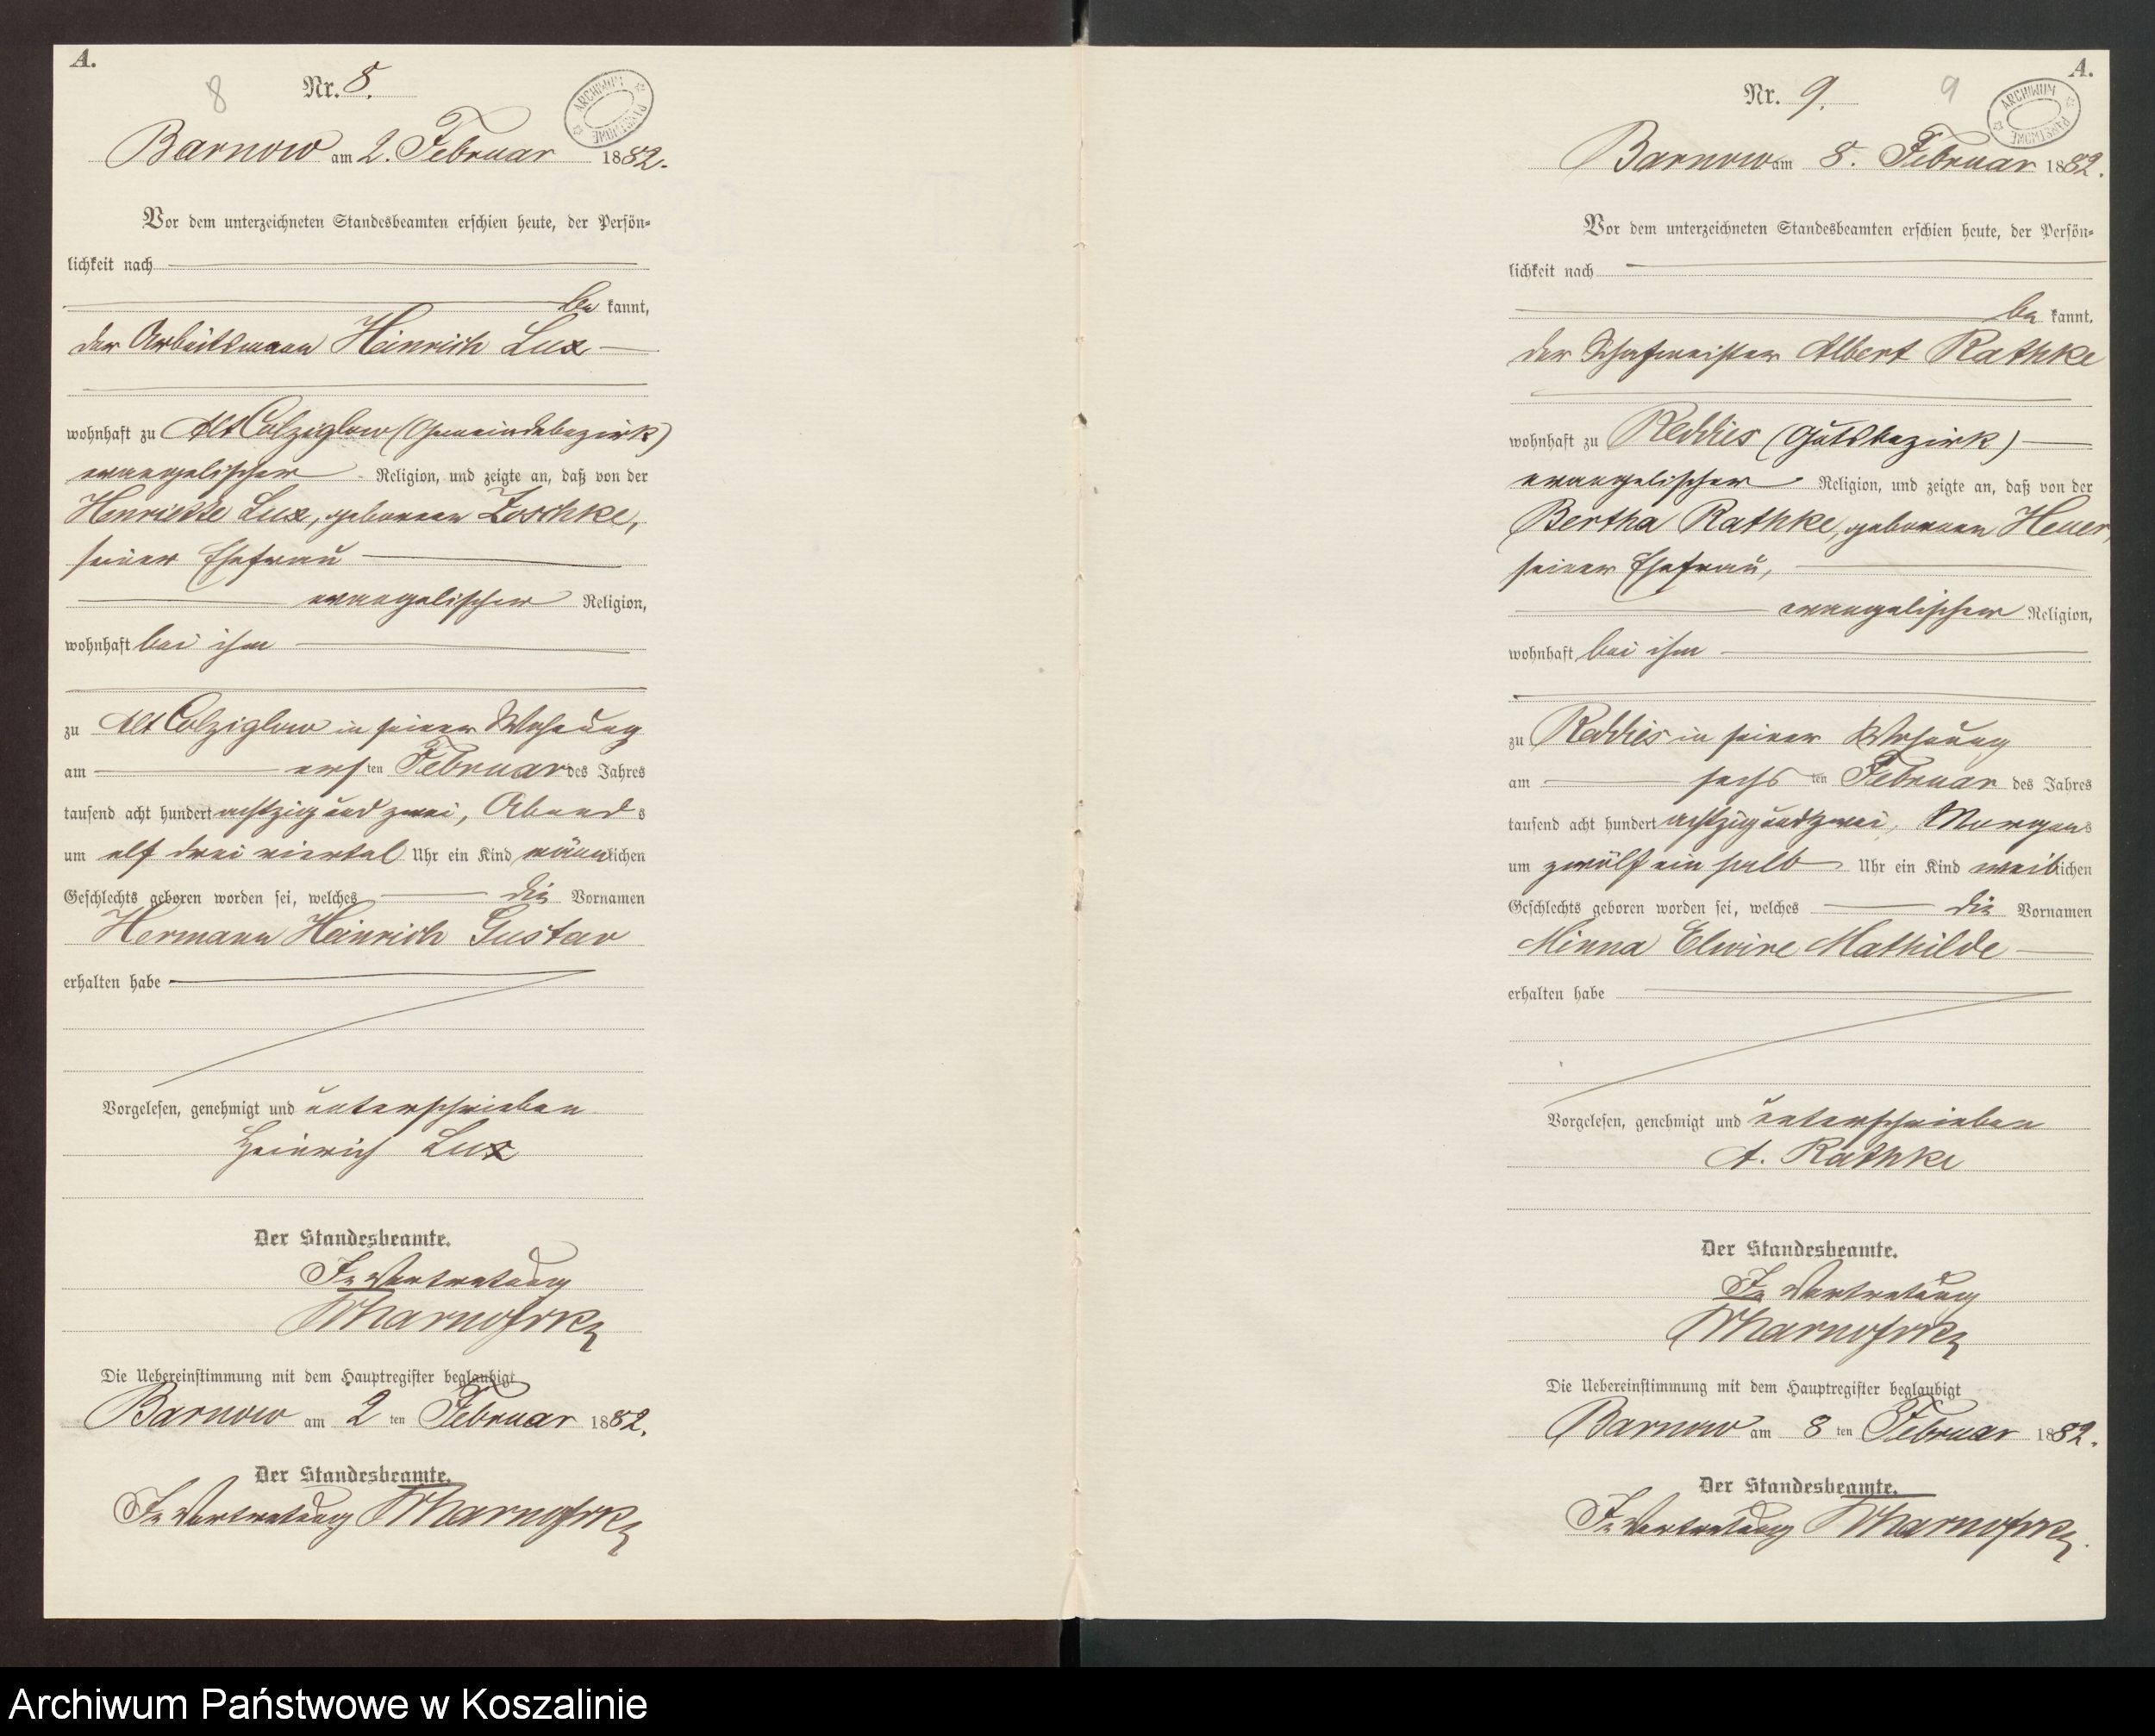 A.
8
Nr. 8.
ARCHIWUM PAŃSTWOWE
Barnow am 2. Februar 1882.
Vor dem unterzeichneten Standesbeamten erschien heute, der Persön=
lichkeit nach
be kannt,
der Arbeitsmann Heinrich Lux
wohnhaft zu Alt Colziglow (Gemeindebezirk)
evangelischer Religion, und zeigte an, daß von der
Henriette Lux, geborenen Zoschke,
seiner Ehefrau
evangelischer Religion,
wohnhaft bei ihm
zu Alt Colziglow in seiner Wohnung
am ersten Februar des Jahres
tausend acht hundert achtzig und zwei, Abends
um elf drei viertel Uhr ein Kind männlichen
Geschlechts geboren worden sei, welches die Vornamen
Hermann Heinrich Gustav
erhalten habe
Vorgelesen, genehmigt und unterschrieben
Heinrich Lux
Der Standesbeamte.
In Vertretung
Die Uebereinstimmung mit dem Hauptregister beglaubigt
Barnow am 2 ten Februar 1882.
Der Standesbeamte.
In Vertretung
A.
9
Nr. 9.
ARCHIWUM PAŃSTWOWE
Barnow am 8. Februar 1882.
Vor dem unterzeichneten Standesbeamten erschien heute, der Persön=
lichkeit nach
be kannt,
der Schafmeister Albert Rathke
wohnhaft zu Reddies (Gutsbezirk)
evangelischer Religion, und zeigte an, daß von der
Bertha Rathke, geborenen Heuer,
seiner Ehefrau,
evangelischer Religion,
wohnhaft bei ihm
zu Reddies in seiner Wohnung
am sechs ten Februar des Jahres
tausend acht hundert achtzig und zwei, Morgens
um zwölf ein halb Uhr ein Kind weiblichen
Geschlechts geboren worden sei, welches die Vornamen
Minna Elwire Mathilde
erhalten habe
Vorgelesen, genehmigt und unterschrieben
A. Rathke
Der Standesbeamte.
In Vertretung
Die Uebereinstimmung mit dem Hauptregister beglaubigt
Barnow am 8 ten Februar 1882.
Der Standesbeamte.
In Vertretung
Archiwum Państwowe w Koszalinie